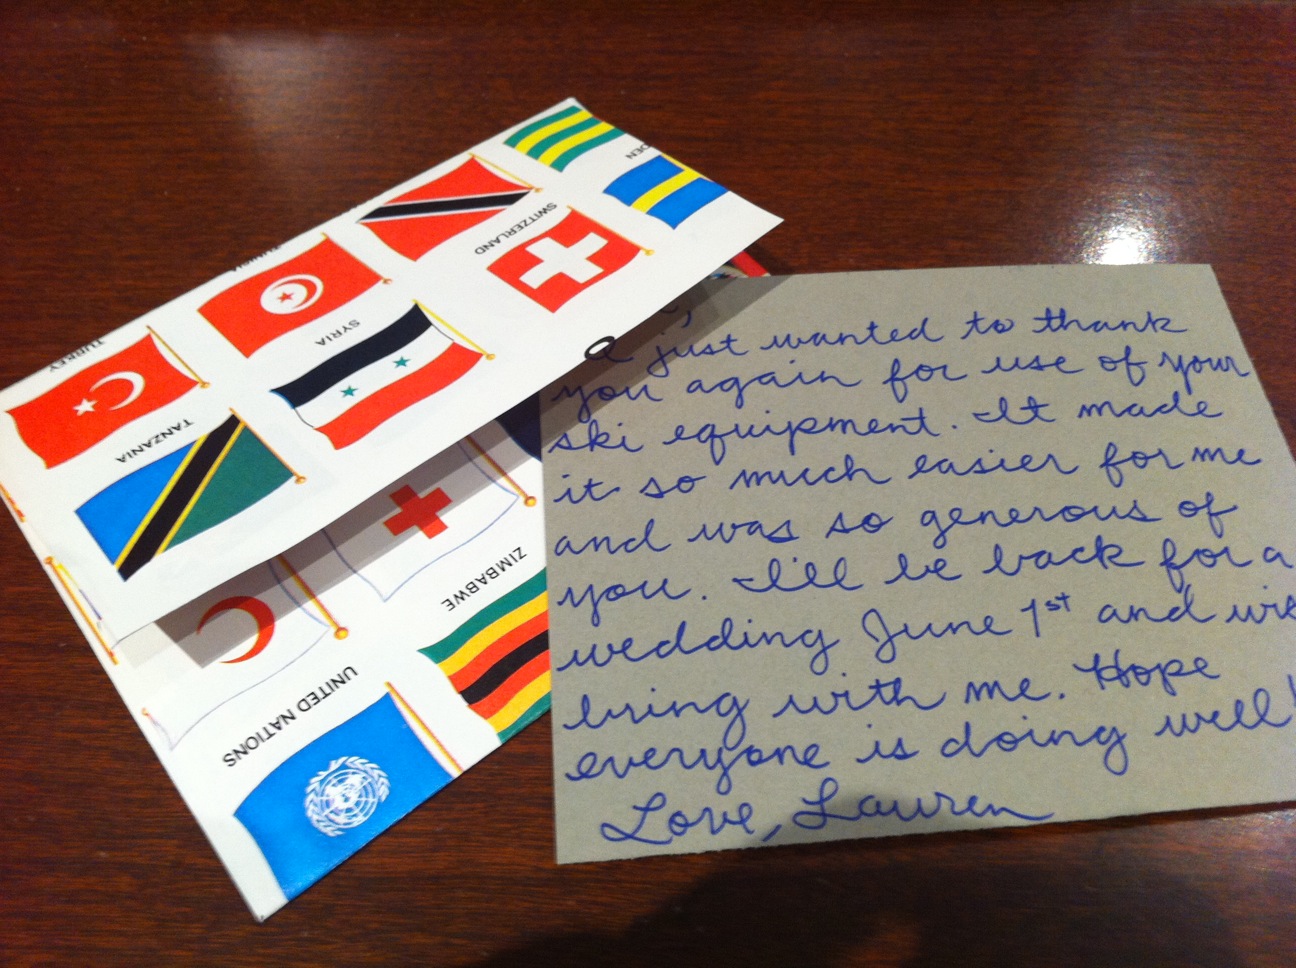 I just wanted to thank
you again for use of your
ski equipment. It made
it so much easier for me
and was so generous of
you. I'll be back for a
wedding June 1st and will
bring with me. Hope
everyone is doing well!
Love, Lauren
SWITZERLAND
SYRIA
TURKEY
TANZANIA
ZIMBABWE
UNITED NATIONS